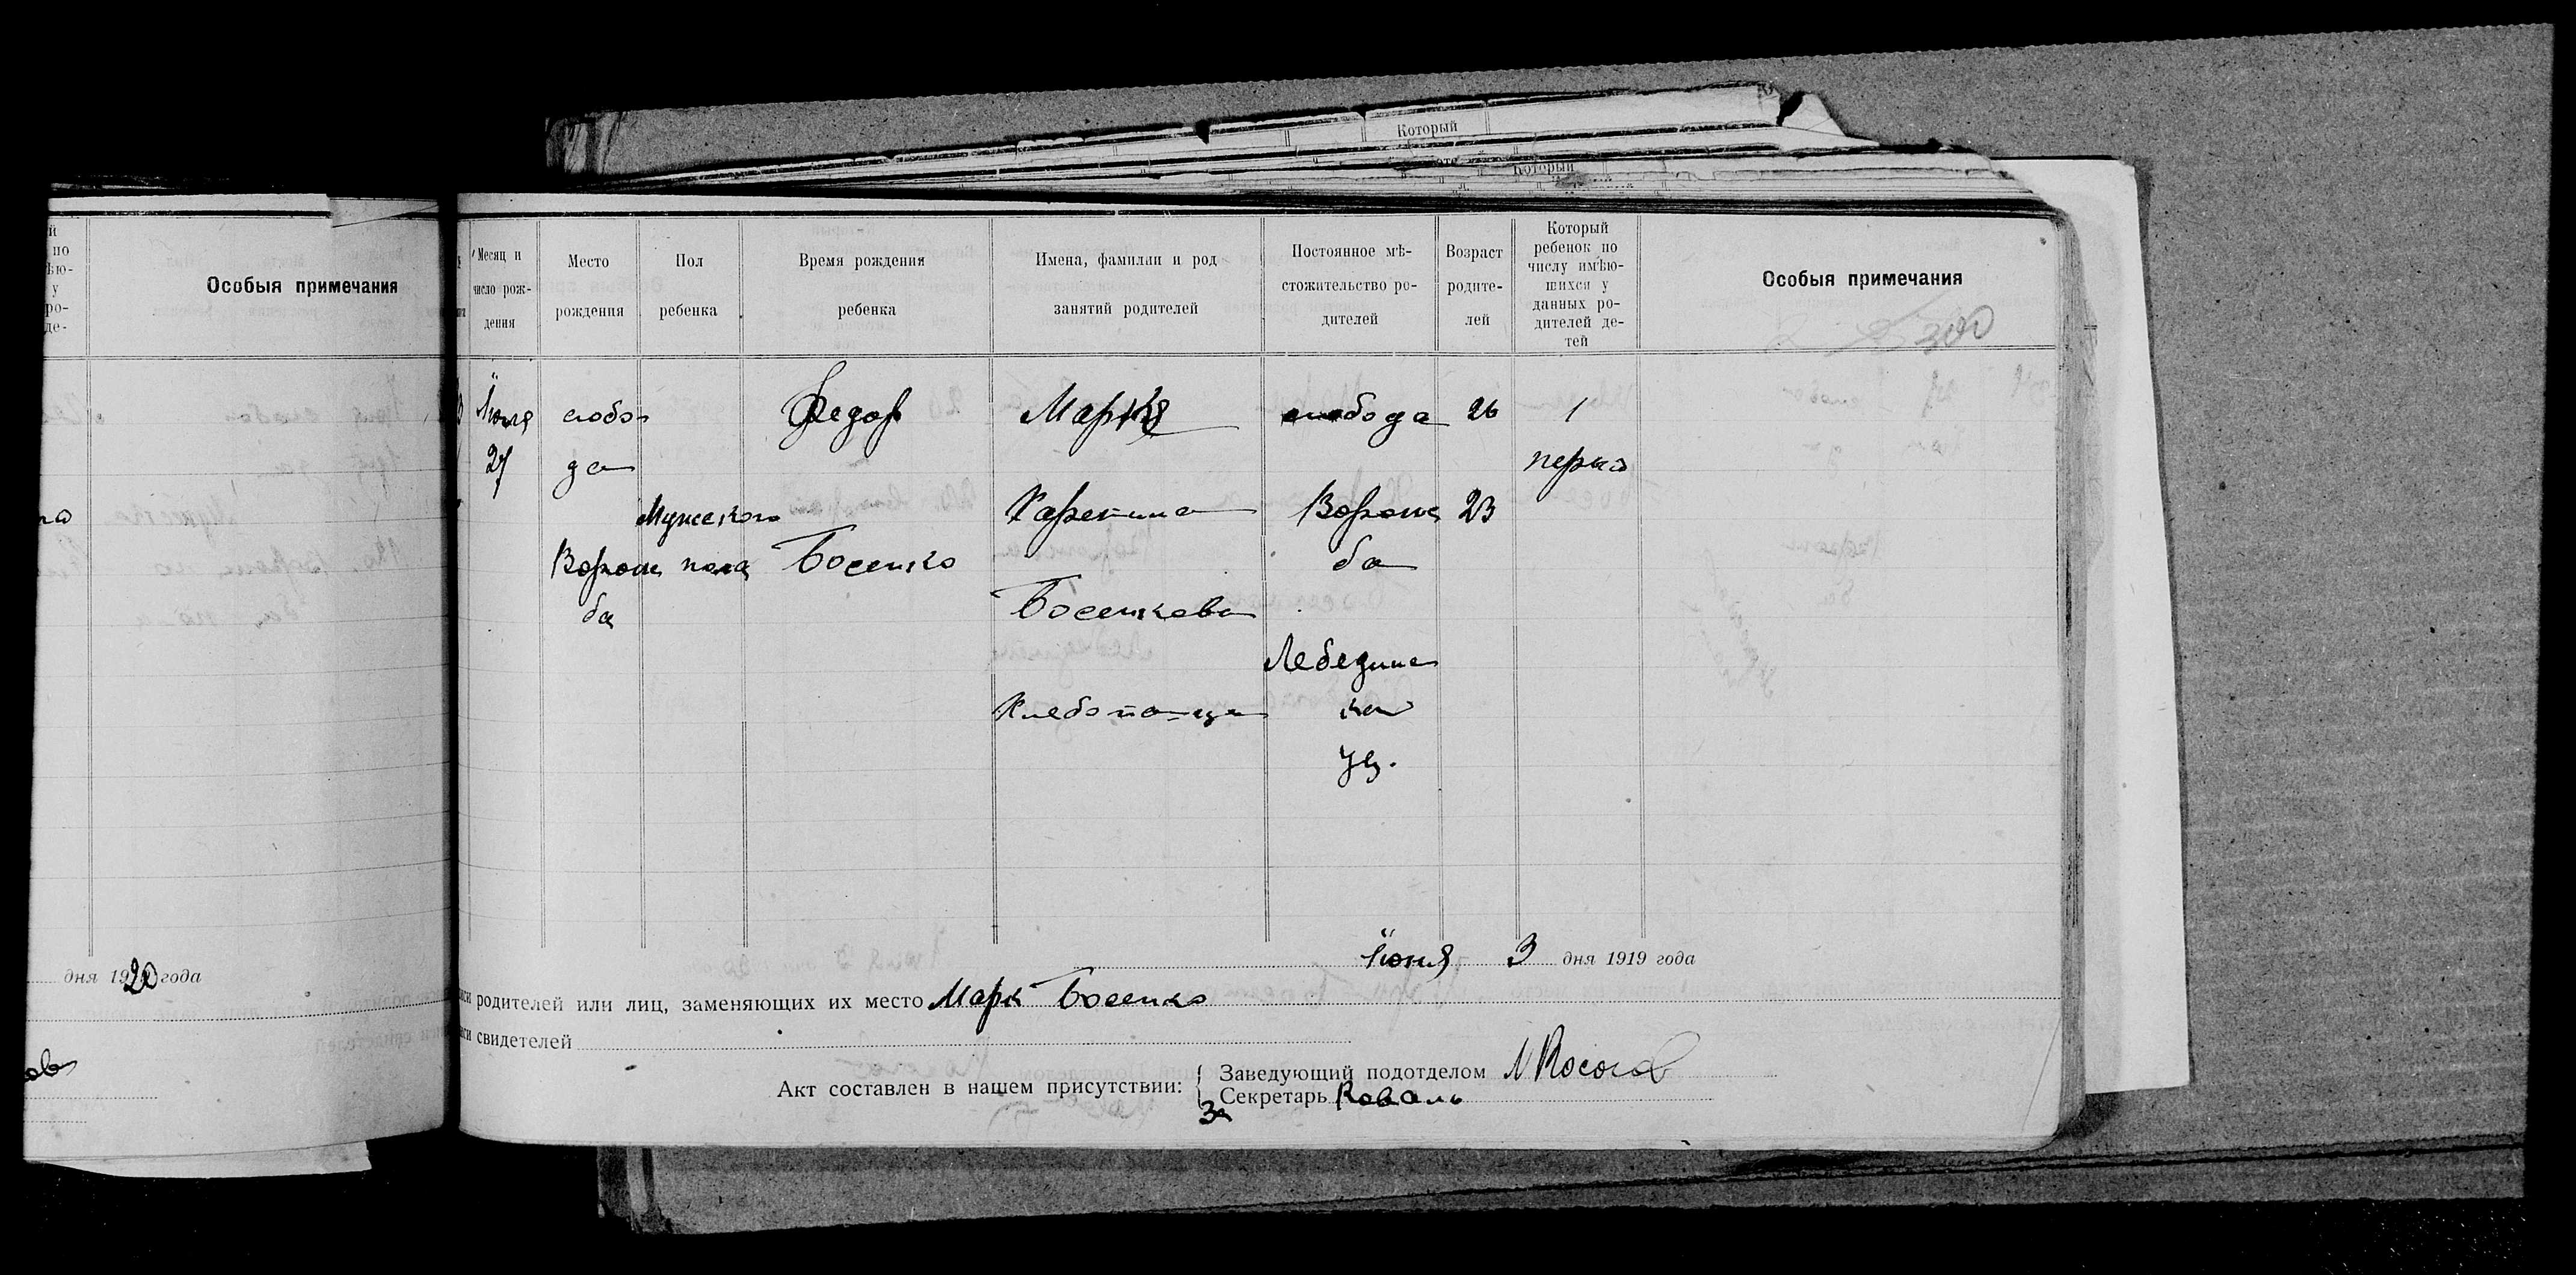 Который
Который
й
по
ѣю-
у
ро-
де-
Особыя примечания
дня 1920 года
Месяц и
число рож-
дения
Место
рождения
Пол
ребенка
Время рождения
ребенка
Имена, фамилии и род
занятий родителей
Постоянное мѣ-
стожительство ро-
дителей
Возраст
родите-
лей
Который
ребенок по
числу имѣю-
шихся у
данных ро-
дителей де-
тей
Особыя примечания
300
27
слобо-
да
Ворож
ба
Мужского
пола
Федор
Босенко
Марк
Босенкова
Хлебопашци
слобода
Ворож
ба
Лебединс
каг
уез.
26
23
1
первы
Июня 3 дня 1919 года
родителей или лиц, заменяющих их место Марк Босенко
свидетелей
Акт составлен в нашем присутствии:
Заведующий подотделом
За Секретарь Коваль